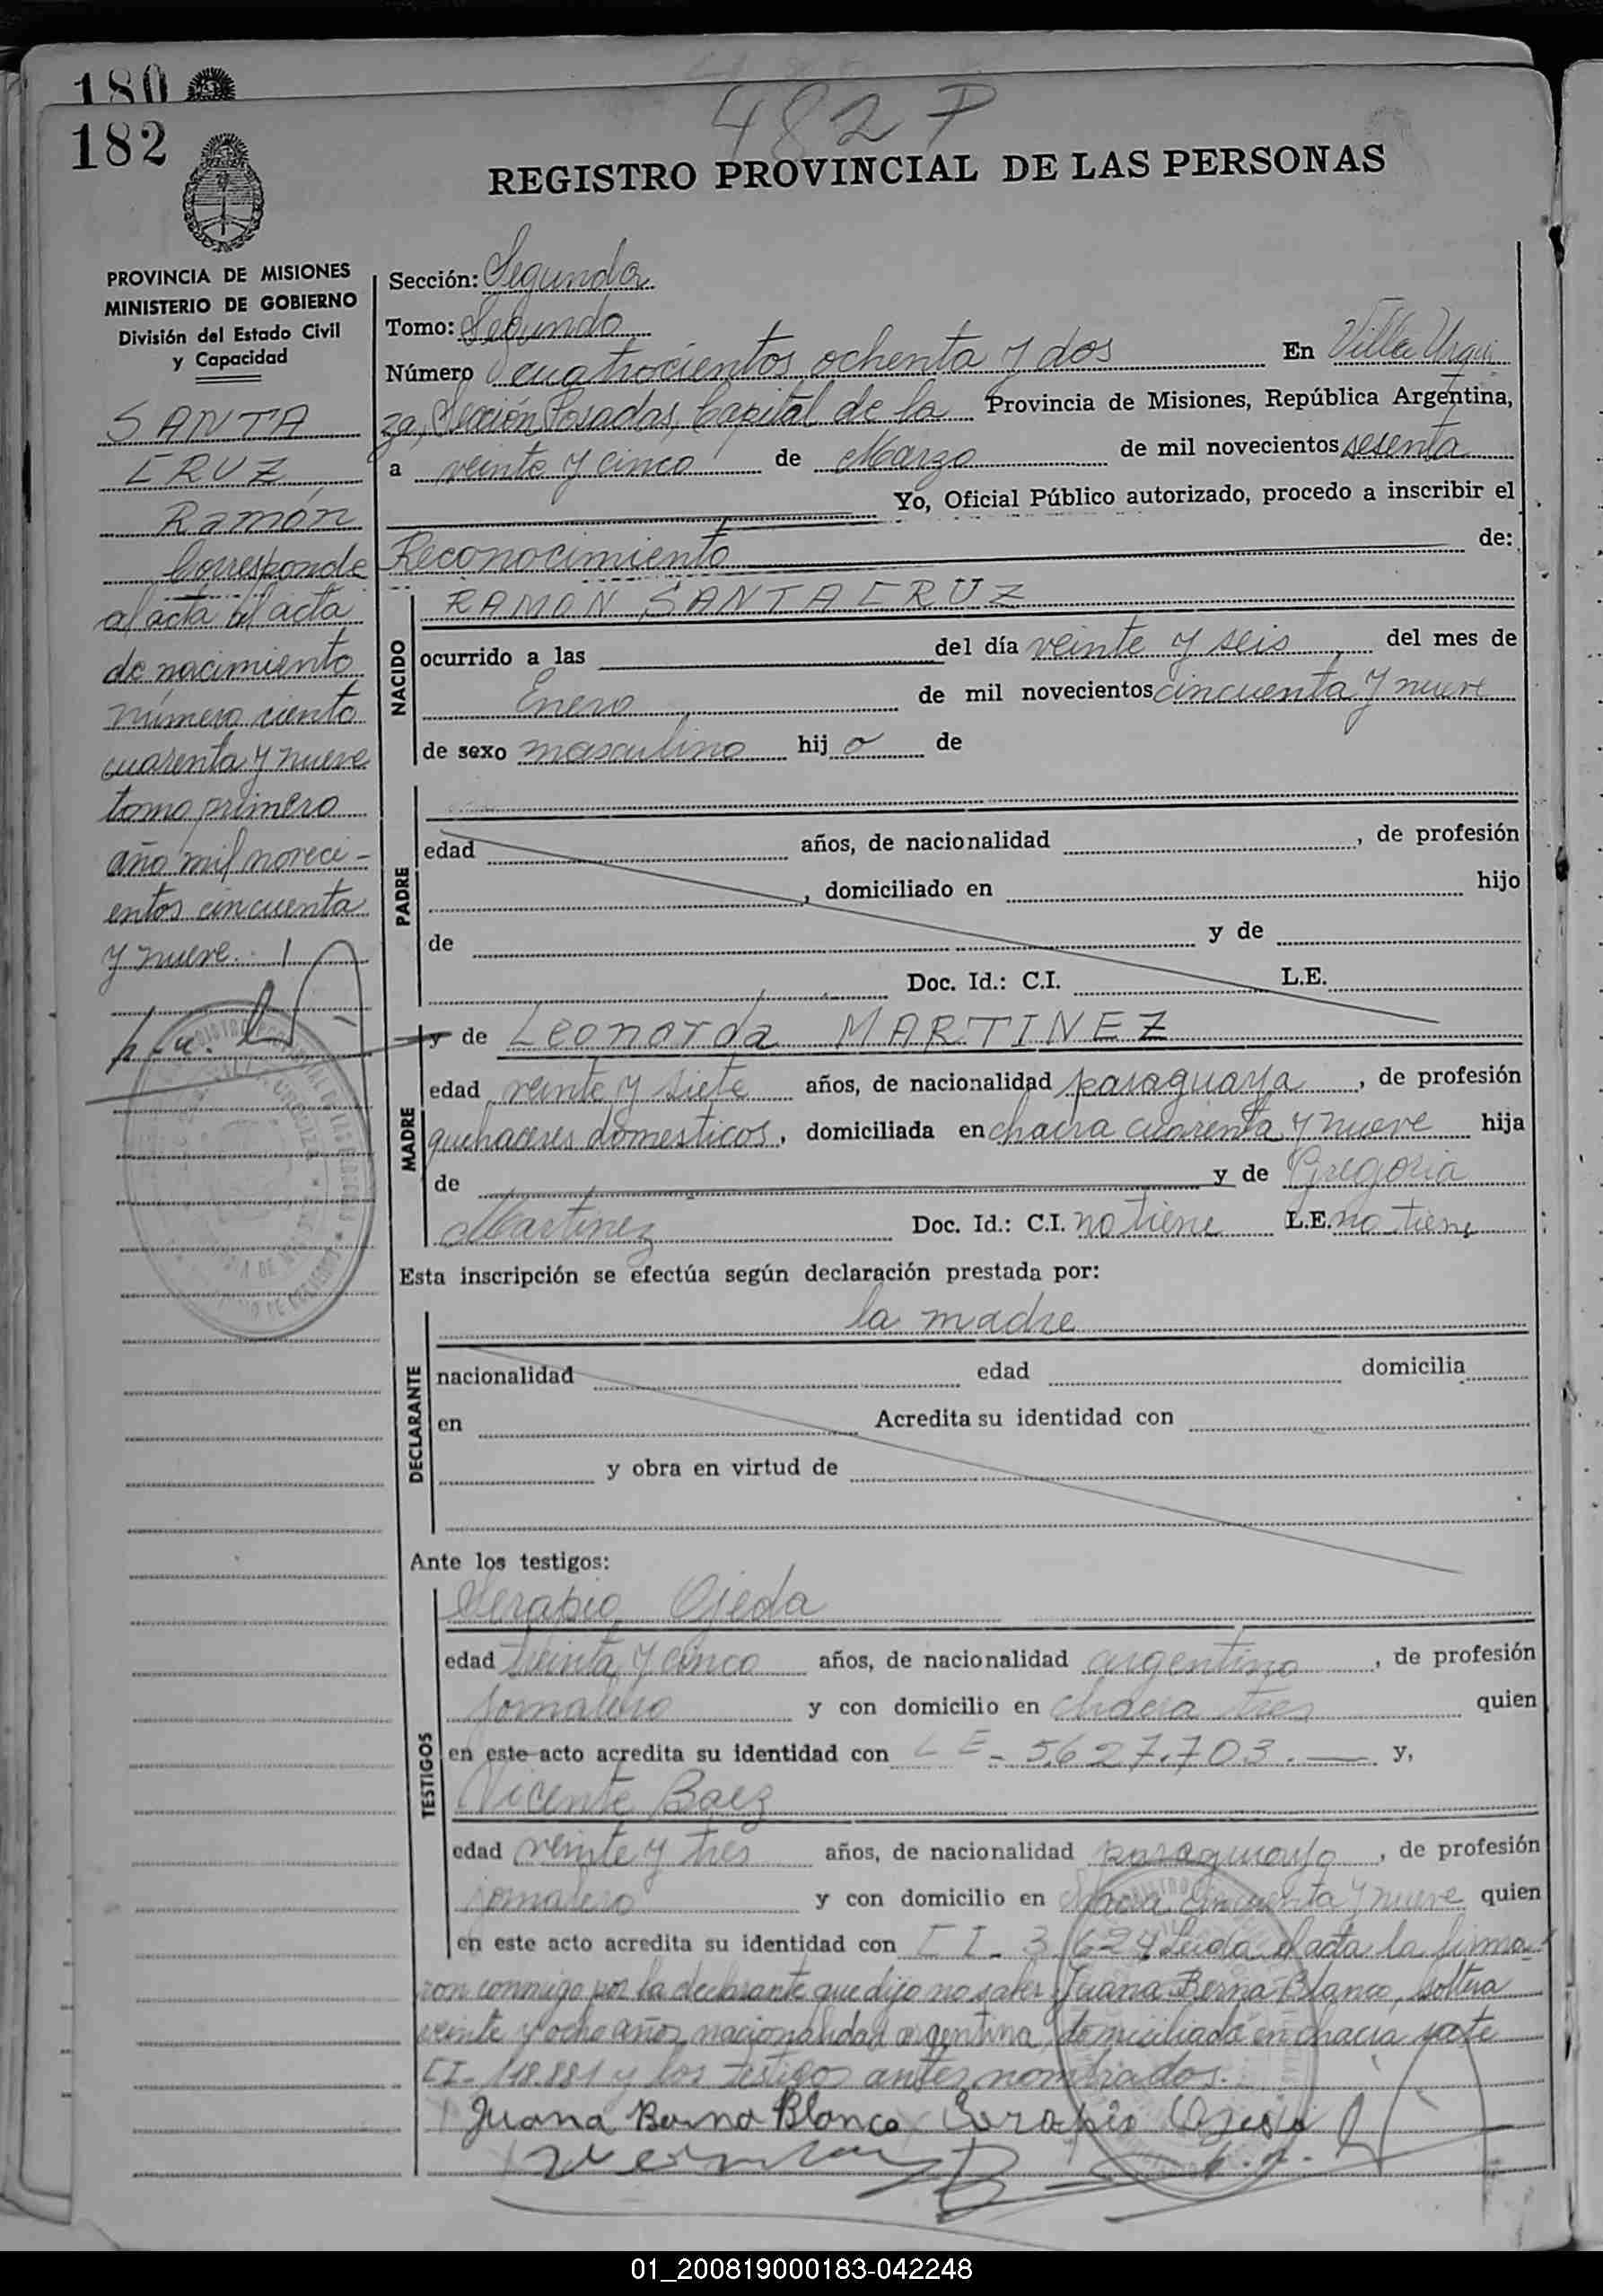 180
182
482 P
REGISTRO PROVINCIAL DE LAS PERSONAS
PROVINCIA DE MISIONES
MINISTERIO DE GOBIERNO
División del Estado Civil
y Capacidad
SANTA
CRUZ
Ramón
Corresponde
al acta al acta
de nacimiento
número ciento
cuarenta y nueve
tomo primero
año mil noveci-
entos cincuenta
y nueve.
Sección: Segunda
Tomo: Segundo
Número cuatrocientos ochenta y dos En Villa Urqui
za, Sección Posadas, Capital de la Provincia de Misiones, República Argentina,
a veinte y cinco de Marzo de mil novecientos sesenta
Yo, Oficial Público autorizado, procedo a inscribir el
Reconocimiento de:
NACIDO
RAMON SANTA CRUZ
ocurrido a las del día veinte y seis del mes de
Enero de mil novecientos cincuenta y nueve
de sexo masculino hijo de
PADRE
edad años, de nacionalidad , de profesión
, domiciliado en hijo
de y de
Doc. Id.: C.I. L.E.
MADRE
y de Leonarda MARTINEZ
edad veinte y siete años, de nacionalidad paraguaya, de profesión
quehaceres domesticos, domiciliada en chacra cuarenta y nueve hija
de y de Gregoria
Martinez Doc. Id.: C.I. no tiene L.E. no tiene
Esta inscripción se efectúa según declaración prestada por:
DECLARANTE
la madre
nacionalidad edad domicilia
en Acredita su identidad con
y obra en virtud de
Ante los testigos:
TESTIGOS
Serapio Ojeda
edad treinta y cinco años, de nacionalidad argentino, de profesión
jornalero y con domicilio en chacra tres quien
en este acto acredita su identidad con L E - 5.627.703.— y,
Vicente Baez
edad veinte y tres años, de nacionalidad paraguayo, de profesión
jornalero y con domicilio en chacra cincuenta y nueve quien
en este acto acredita su identidad con C I - 3.624 Leida el acta la firma-
ron conmigo por la declarante que dijo no saber Juana Berna Blanco, soltera
veinte y ocho años, nacionalidad argentina, domiciliada en chacra
CI- 118.881 y los testigos antes nombrados.
Juana Berna Blanco Serapio Ojeda
01_200819000183-042248